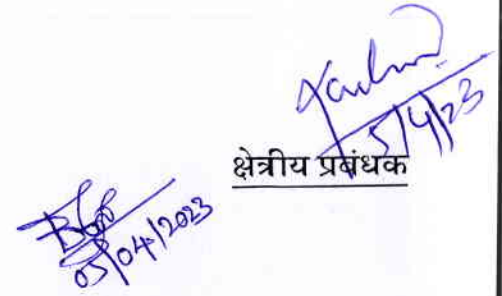 5/4/23
क्षेत्रीय प्रबंधक
05/04/2023